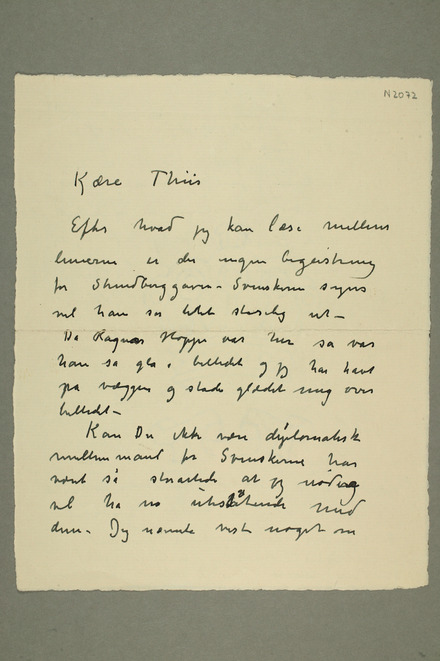 N2072
Kære Thiis
Efter hvad jeg kan læse mellem
linierne er der ingen begeistring
for Strindberggaven – Svenskerne synes
vel han ser lidt stusslig ut –
Da Ragnar Hoppe var her så var
han så gla i billedet og jeg har havt
på væggen og stadig glædet mig over
billedet –
Kan Du ikke være diplomatisk
mellemmand for Svenskerne har
været så storartede at jeg nødig
vil ha no udestående med
dem – Du nævnte vist noget om